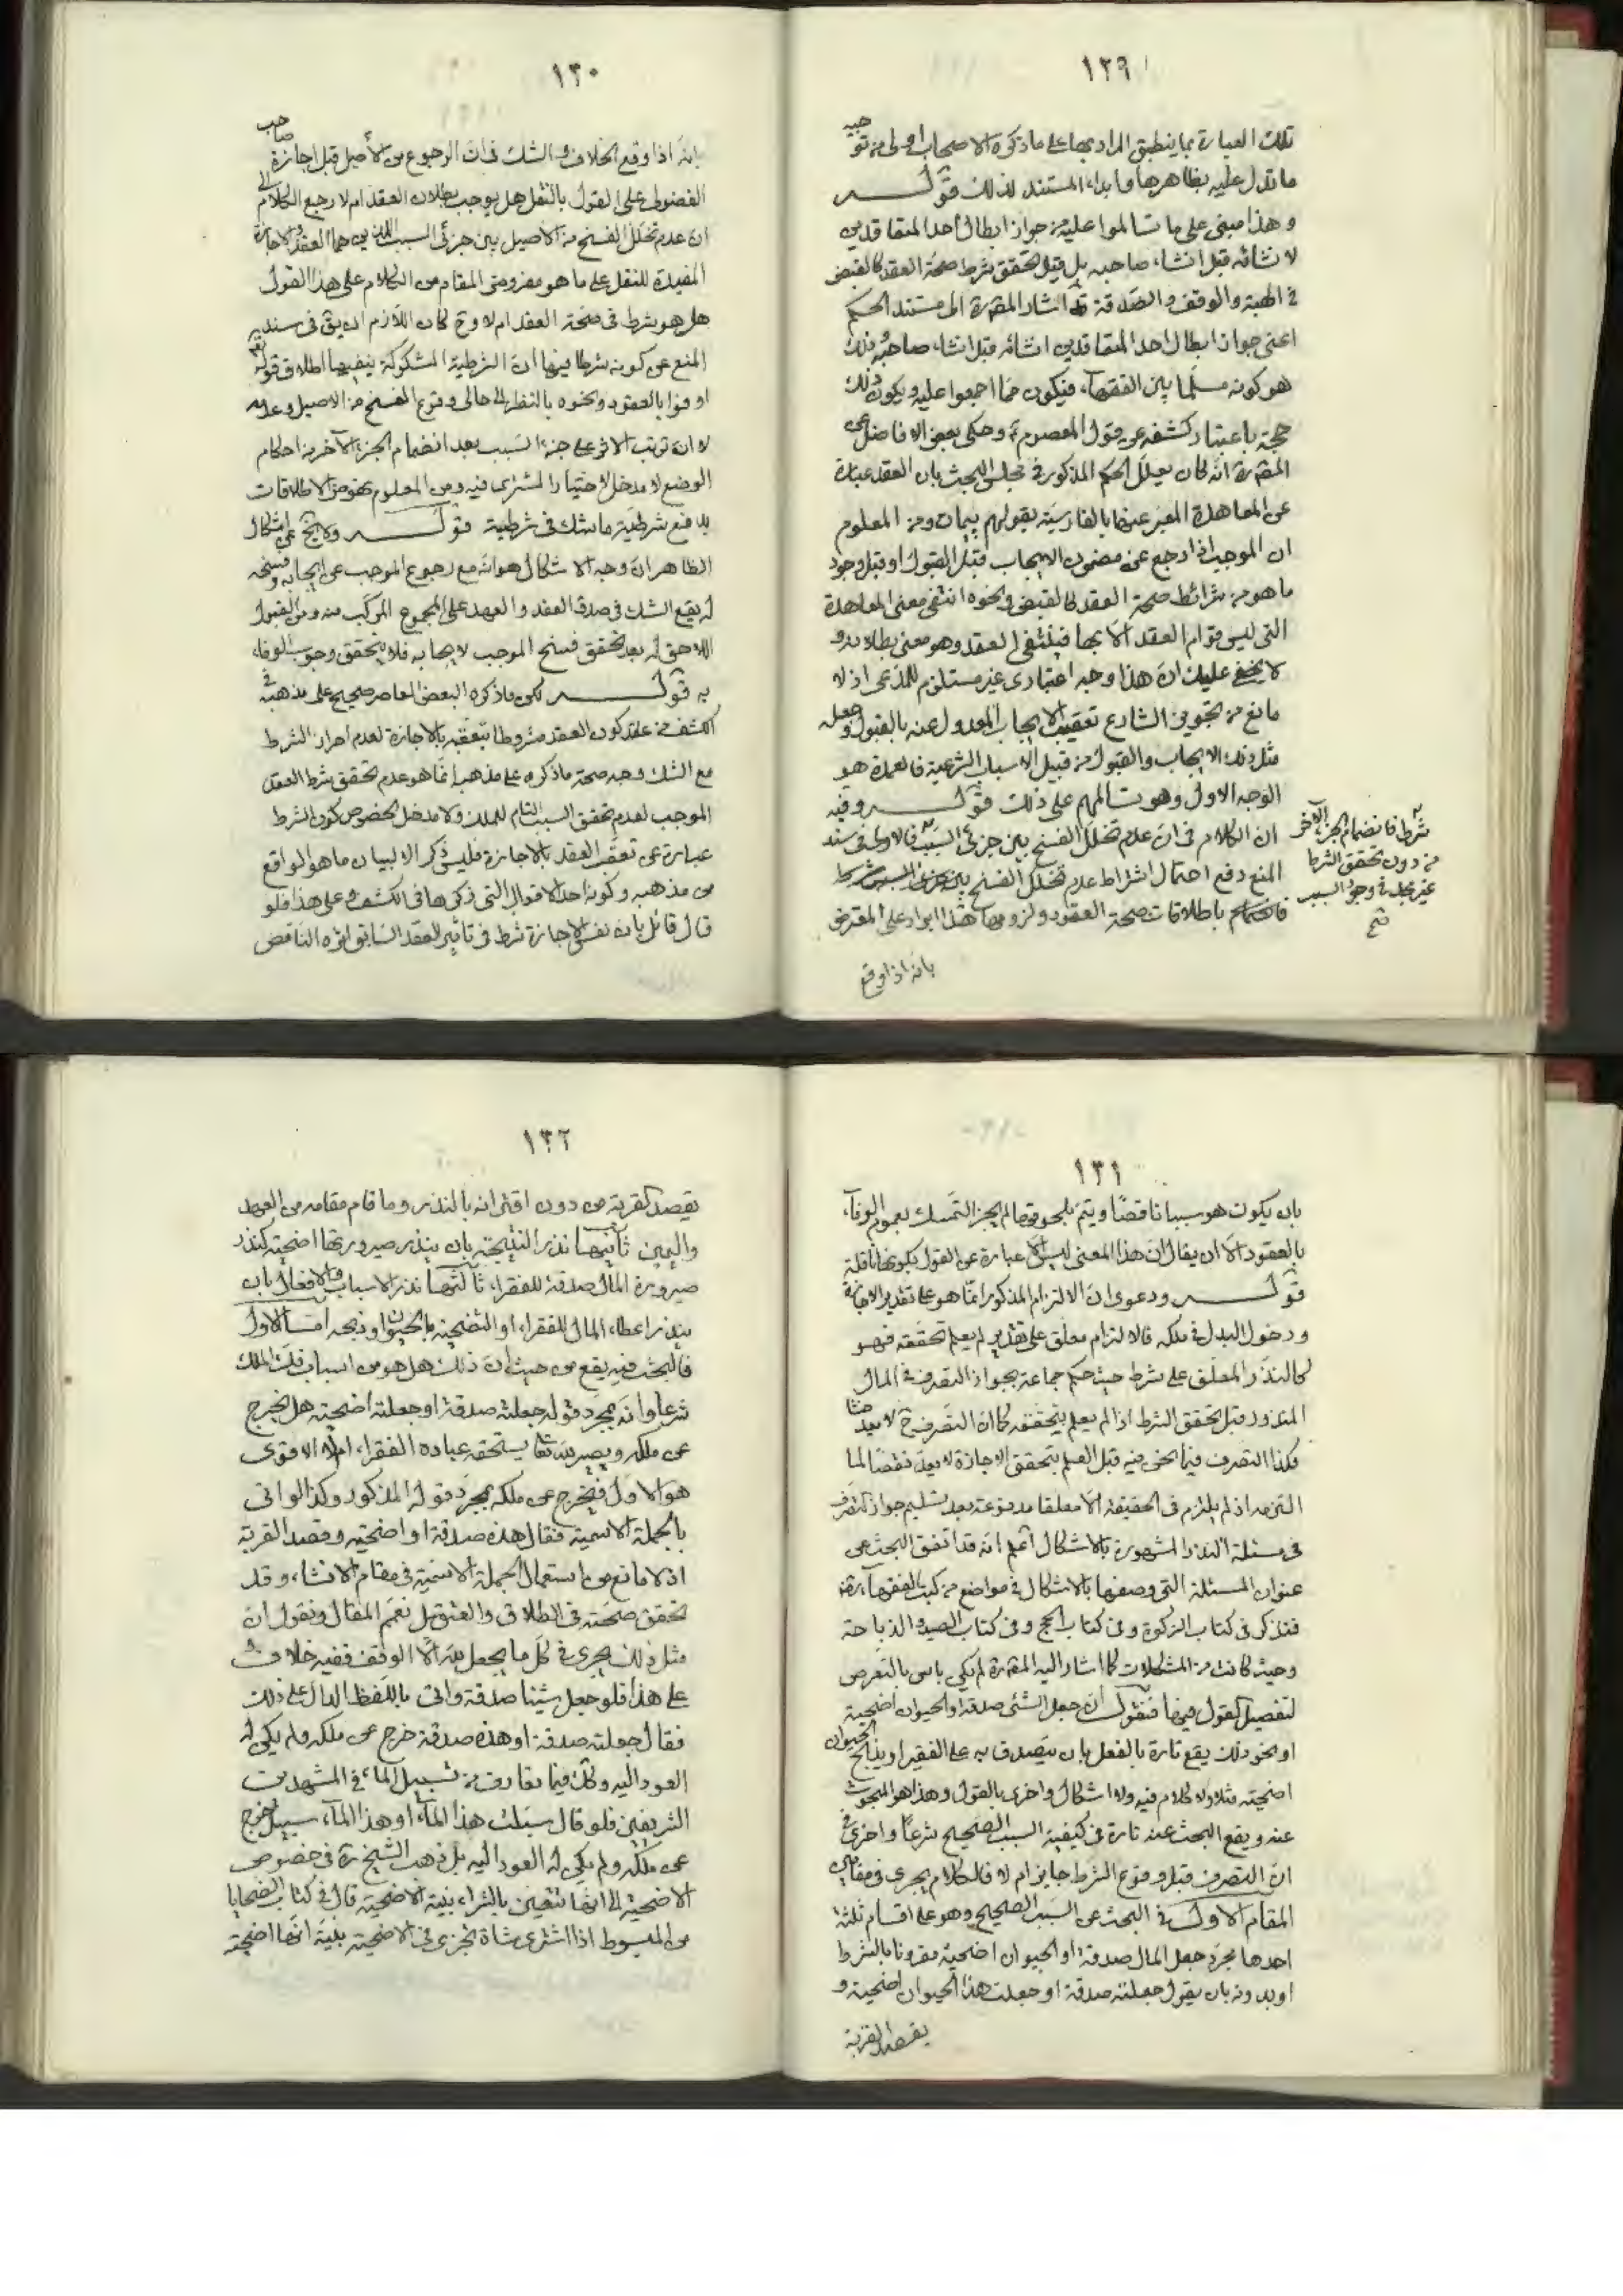 ١٢٩
تلك العبارة بما ينطبق المراد بها على ما ذكره الاصحاب اولى من توجيه
ما تدل عليه بظاهرها وابداء المستند لذلك قوله
وهذا مبنى على ما تسالموا عليه من جواز ابطال احد المتعاقدين
لانشائه قبل انشاء صاحبه بل قبل تحقق شرط صحة العقد كالقبض
في الهبة والوقف والصدقة قد اشار المص ره الى مستند الحكم
اعنى جواز ابطال احد المتعاقدين انشائه قبل انشاء صاحبه وذلك
هو كونه مسلما بين الفقهاء فيكون مما اجمعوا عليه ويكون ذلك
حجة باعتبار كشفه عن قول المعصوم ع وحكى بعض الافاضل عن
المص ره انه كان يعلل الحكم المذكور في مجلس البحث بان العقد عبارة
عن المعاهدة المعبر عنها بالفارسية بقولهم پيمان ومن المعلوم
ان الموجب اذا رجع عن مضمون الايجاب قبل القبول او قبل وجود
ما هو من شرائط صحة العقد كالقبض ونحوه انتفى معنى المعاهدة
التى ليس قوام العقد الا بها فينتفى العقد وهو معنى بطلانه و
لا يخفى عليك ان هذا وجه اعتبارى غير مستلزم للمدعى اذ لا
مانع من تجويز الشارع تعقيب الايجاب المعدول عنه بالقبول وجعله
مثل ذلك الايجاب والقبول من قبيل الاسباب الشرعية فالعمدة هو
الوجه الاول وهو تسالمهم على ذلك قوله وفيه
ان الكلام في ان عدم تخلل الفسخ بين جزئى السبب شرط فانضمام الجزء الآخر
من دون تحقق الشرط
غير مجد في وجود السبب
تم
فالاولى في سند
المنع دفع احتمال اشتراط عدم تخلل الفسخ
باطلاقات صحة العقود ولزومها هذا ايراد على المعترض
بانه اذا وقع
١٣٠
بانه اذا وقع الخلاف والشك في ان الرجوع من الأصيل قبل اجازة صاحب
الفضولى على القول بالنقل هل يوجب بطلان العقد ام لا رجع الكلام الى
ان عدم تخلل الفسخ من الاصيل بين جزئى السبب اللذين هما العقد والاجازة
المفيدة للنقل على ما هو مفروض المقام من الكلام على هذا القول
هل هو شرط في صحة العقد ام لا وح كان اللازم ان يق في سند
المنع عن كونه شرطا فيها ان الشرطية المشكوكة ينفيها اطلاق قوله تع
اوفوا بالعقود ونحوه بالنظر الى حالى وقوع الفسخ من الاصيل وعدمه
لا ان ترتب الاثر على جزء السبب بعد انضمام الجزء الآخر من احكام
الوضع لا مدخل لاختيار المشترى فيه ومن المعلوم نهوض الاطلاقات
بدفع شرطية ما شك في شرطيته قوله ولا يخ عن اشكال
الظاهر ان وجه الاشكال هو انه مع رجوع الموجب عن ايجابه وفسخه
له يقع الشك في صدق العقد والعهد على المجموع المركب منه ومن القبول
اللاحق له بعد تحقق فسخ الموجب لايجابه فلا يتحقق وجوب الوفاء
به قوله لكن ما ذكره البعض المعاصر صحيح على مذهبه في
الكشف من كون العقد مشروطا بتعقبه بالاجازة لعدم احراز الشرط
مع الشك وجه صحة ما ذكره على مذهبه انما هو عدم تحقق شرط العقد
الموجب لعدم تحقق السبب التام للملك ولا مدخل لخصوص كون الشرط
عبارة عن تعقب العقد بالاجازة فليس ذكره الا لبيان ما هو الواقع
من مذهبه وكونه احد الاقوال التى ذكرها في الكشف وعلى هذا فلو
قال قائل بان نفس الاجازة شرط في تأثير العقد السابق اثره الناقص
١٣١
بان يكون هو سببا ناقصا ويتم بلحوقها لم يجز التمسك بعموم الوفاء
بالعقود الا ان يقال ان هذا المعنى ليس الا عبارة عن القول بكونها ناقلة
قوله ودعوى ان الالتزام المذكور انما هو على تقدير الاجازة
ودخول البدل في ملكه فالالتزام معلق على تقدير لم يعلم تحققه فهو
كالنذر المعلق على شرط حيث حكم جماعة بجواز التصرف في المال
المنذور قبل تحقق الشرط اذا لم يعلم بتحققه كما ان التصرف ح لا يعد حنثا
فكذا التصرف فيما نحن فيه قبل العلم بتحقق الاجازة لا يعد نقضا لما
التزمه اذ لم يلتزم في الحقيقة الا معلقا مدفوعة بعد تسليم جواز التصرف
في مسئلة النذر المشهورة بالاشكال اعلم انه قد اتفق البحث عن
عنوان المسئلة التى وصفها بالاشكال في مواضع من كتب الفقهاء رض
فتذكر في كتاب الزكوة وفي كتاب الحج وفي كتاب الصيد والذباحة
وحيث كانت من المشكلات كما اشار اليه المص ره لم يكن باس بالتعرض
لتفصيل القول فيها فنقول ان جعل الشئ صدقة والحيوان اضحية
او نحو ذلك يقع تارة بالفعل بان يتصدق به على الفقير او يذبح الحيوان
اضحية مثلا ولا كلام فيه ولا اشكال واخرى بالقول وهذا هو المبحوث
عنه ويقع البحث عنه تارة في كيفية السبب الصحيح شرعا واخرى في
ان التصرف قبل وقوع الشرط جايز ام لا فالكلام يجرى في مقامين
المقام الاول في البحث عن السبب الصحيح وهو على اقسام ثلثة
احدها مجرد جعل المال صدقة او الحيوان اضحية مقرونا بالشرط
او بدونه بان يقول جعلته صدقة او جعلت هذا الحيوان اضحية و
يقصد القربة
١٣٢
يقصد القربة من دون اقترانه بالنذر وما قام مقامه من العهد
واليمين ثانيها نذر النتيجة بان ينذر صيرورتها اضحية كنذر
صيرورة المال صدقة للفقراء ثالثها نذر الاسباب والافعال بان
ينذر اعطاء المال للفقراء او التضحية بالحيوان او ذبحه اما الاول
فالبحث فيه يقع من حيث ان ذلك هل هو من اسباب فك الملك
شرعا وانه بمجرد قوله جعلته صدقة او جعلته اضحية هل يخرج
عن ملكه ويصير لله تعالى يستحقه عباده الفقراء ام لا الاقوى
هو الاول فيخرج عن ملكه بمجرد قوله المذكور وكذا لو اتى
بالجملة الاسمية فقال هذه صدقة او اضحية وقصد القربة
اذ لا مانع من استعمال الجملة الاسمية في مقام الانشاء وقد
تحقق صحته في الطلاق والعتق بل نعمم المقال ونقول ان
مثل ذلك يجرى في كل ما يجعل لله الا الوقف ففيه خلاف
على هذا فلو جعل شيئا صدقة واتى باللفظ الدال على ذلك
فقال جعلته صدقة او هذه صدقة خرج عن ملكه ولم يكن له
العود اليه وكك فيما تعارف من تسبيل الماء في المشهدين
الشريفين فلو قال سبلت هذا الماء او هذا الماء سبيل خرج
عن ملكه ولم يكن له العود اليه بل ذهب الشيخ ره في خصوص
الاضحية الى انها تتعين بالشراء بنية الاضحية قال في كتاب الضحايا
من المبسوط اذا اشترى شاة تجزى في الاضحية بنية انها اضحية